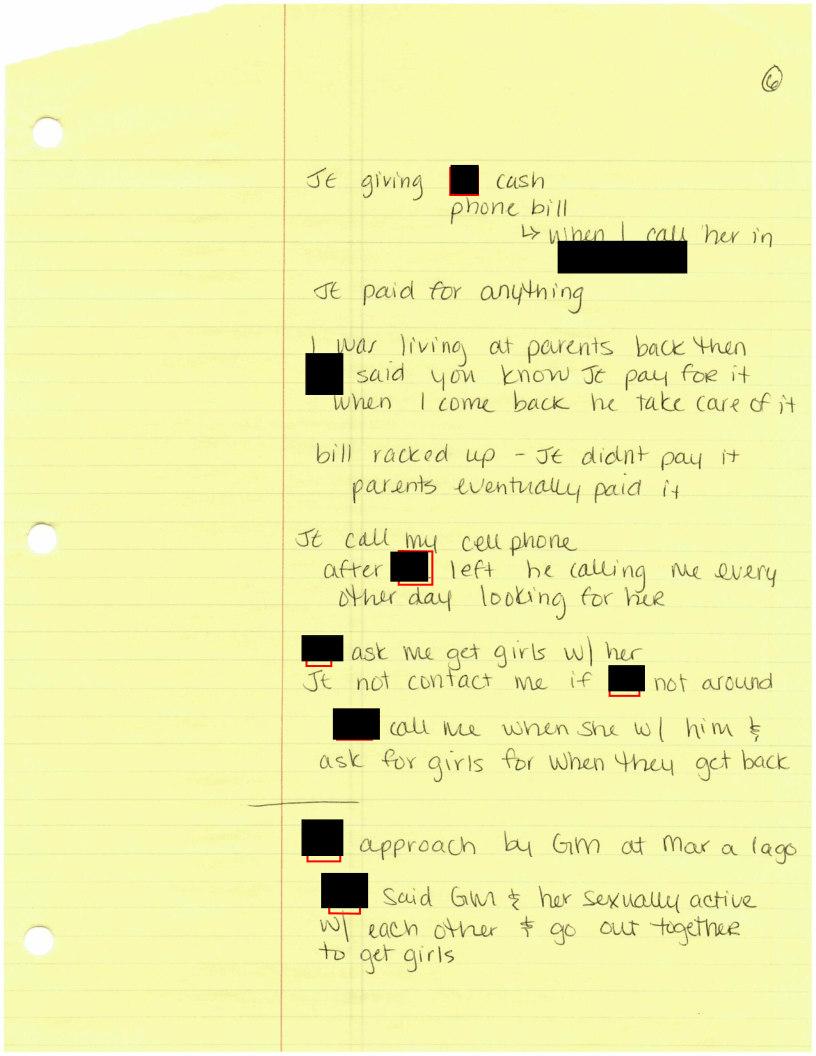 6
JE giving cash
phone bill
↳ when I call her in
JE paid for anything
I was living at parents back then
said you know JE pay for it
when I come back he take care of it
bill racked up - JE didnt pay it
parents eventually paid it
JE call my cell phone
after left he calling me every
other day looking for her
ask me get girls w/ her
JE not contact me if not around
call me when she w/ him &
ask for girls for when they get back
approach by GM at Mar a lago
said GM & her sexually active
w/ each other & go out together
to get girls